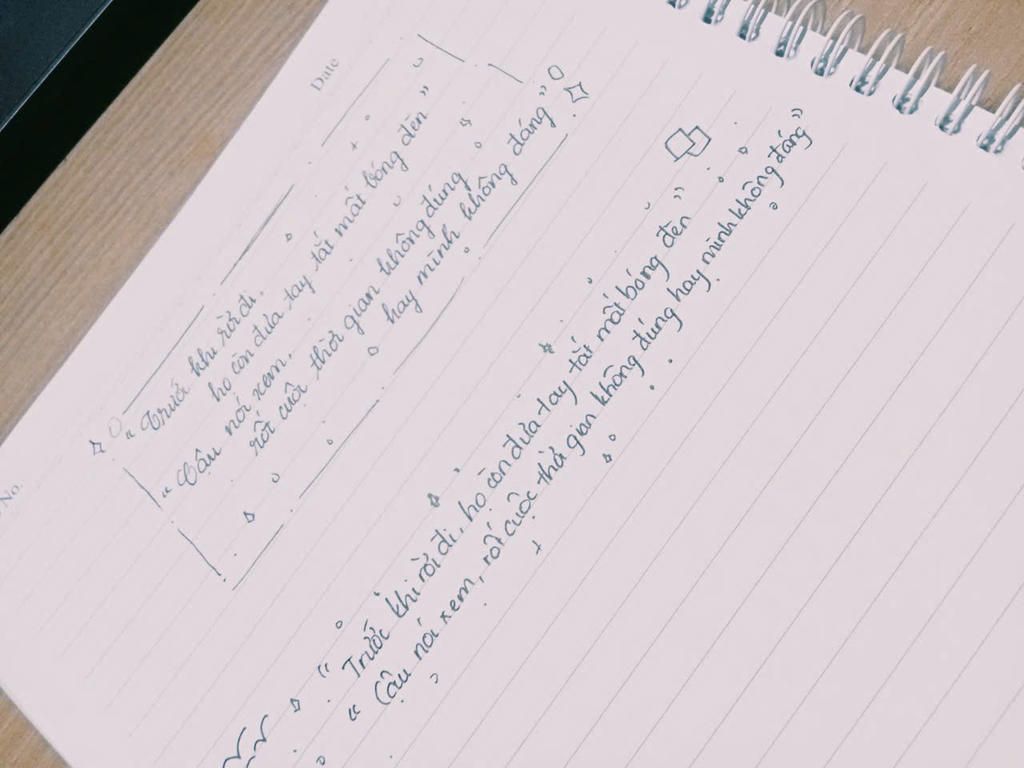 No.
Date
"Trước khi rời đi.
họ còn đưa tay tắt mất bóng đèn"
"Cậu nói xem.
rốt cuộc thời gian không đúng
hay mình không đáng"
"Trước khi rời đi, họ còn đưa tay tắt mất bóng đèn"
"Cậu nói xem, rốt cuộc thời gian không đúng hay mình không đáng"